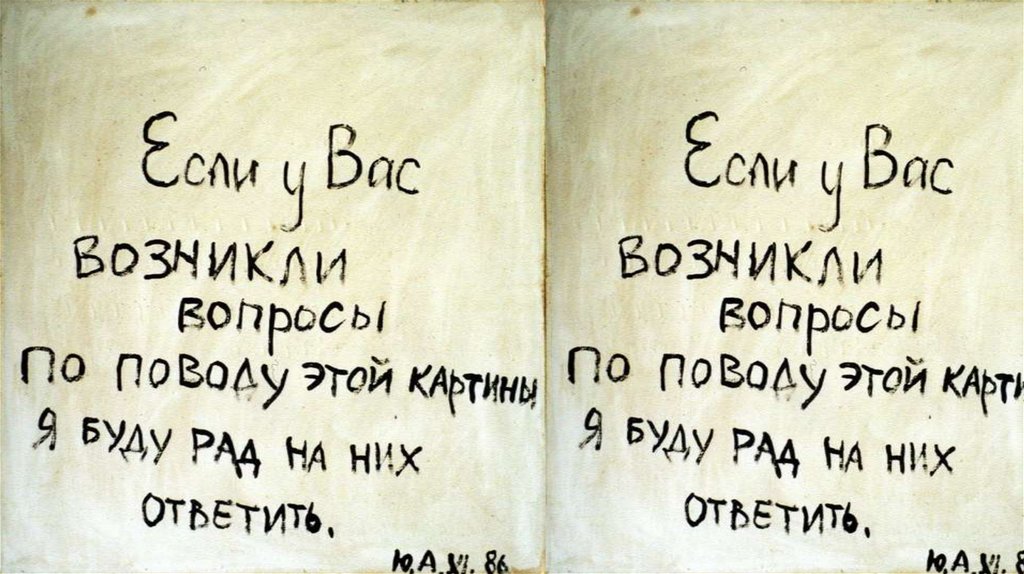 Если у Вас
возникли
вопросы
по поводу этой картины
Я буду рад на них
ответить.
Ю.А. XI. 86
Если у Вас
возникли
вопросы
по поводу этой карти
Я буду рад на них
ответить.
Ю.А. XI. 8